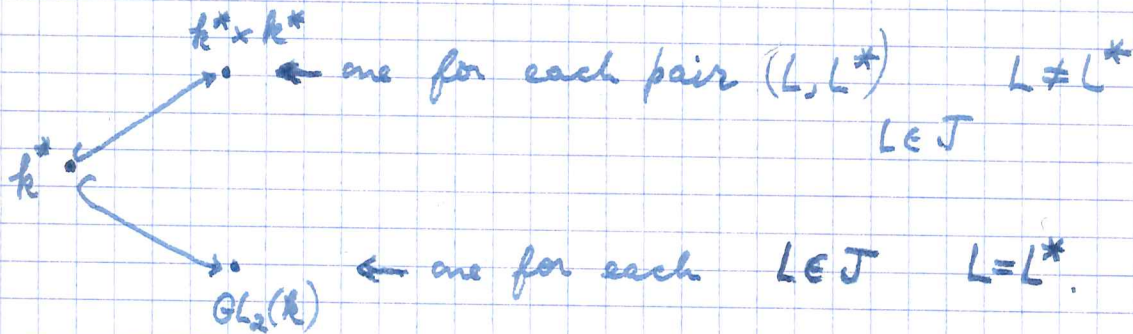 k* × k*
← one for each pair (L, L*) L ≠ L*
L ∈ J
k*
← one for each L ∈ J L = L*.
GL₂(k)